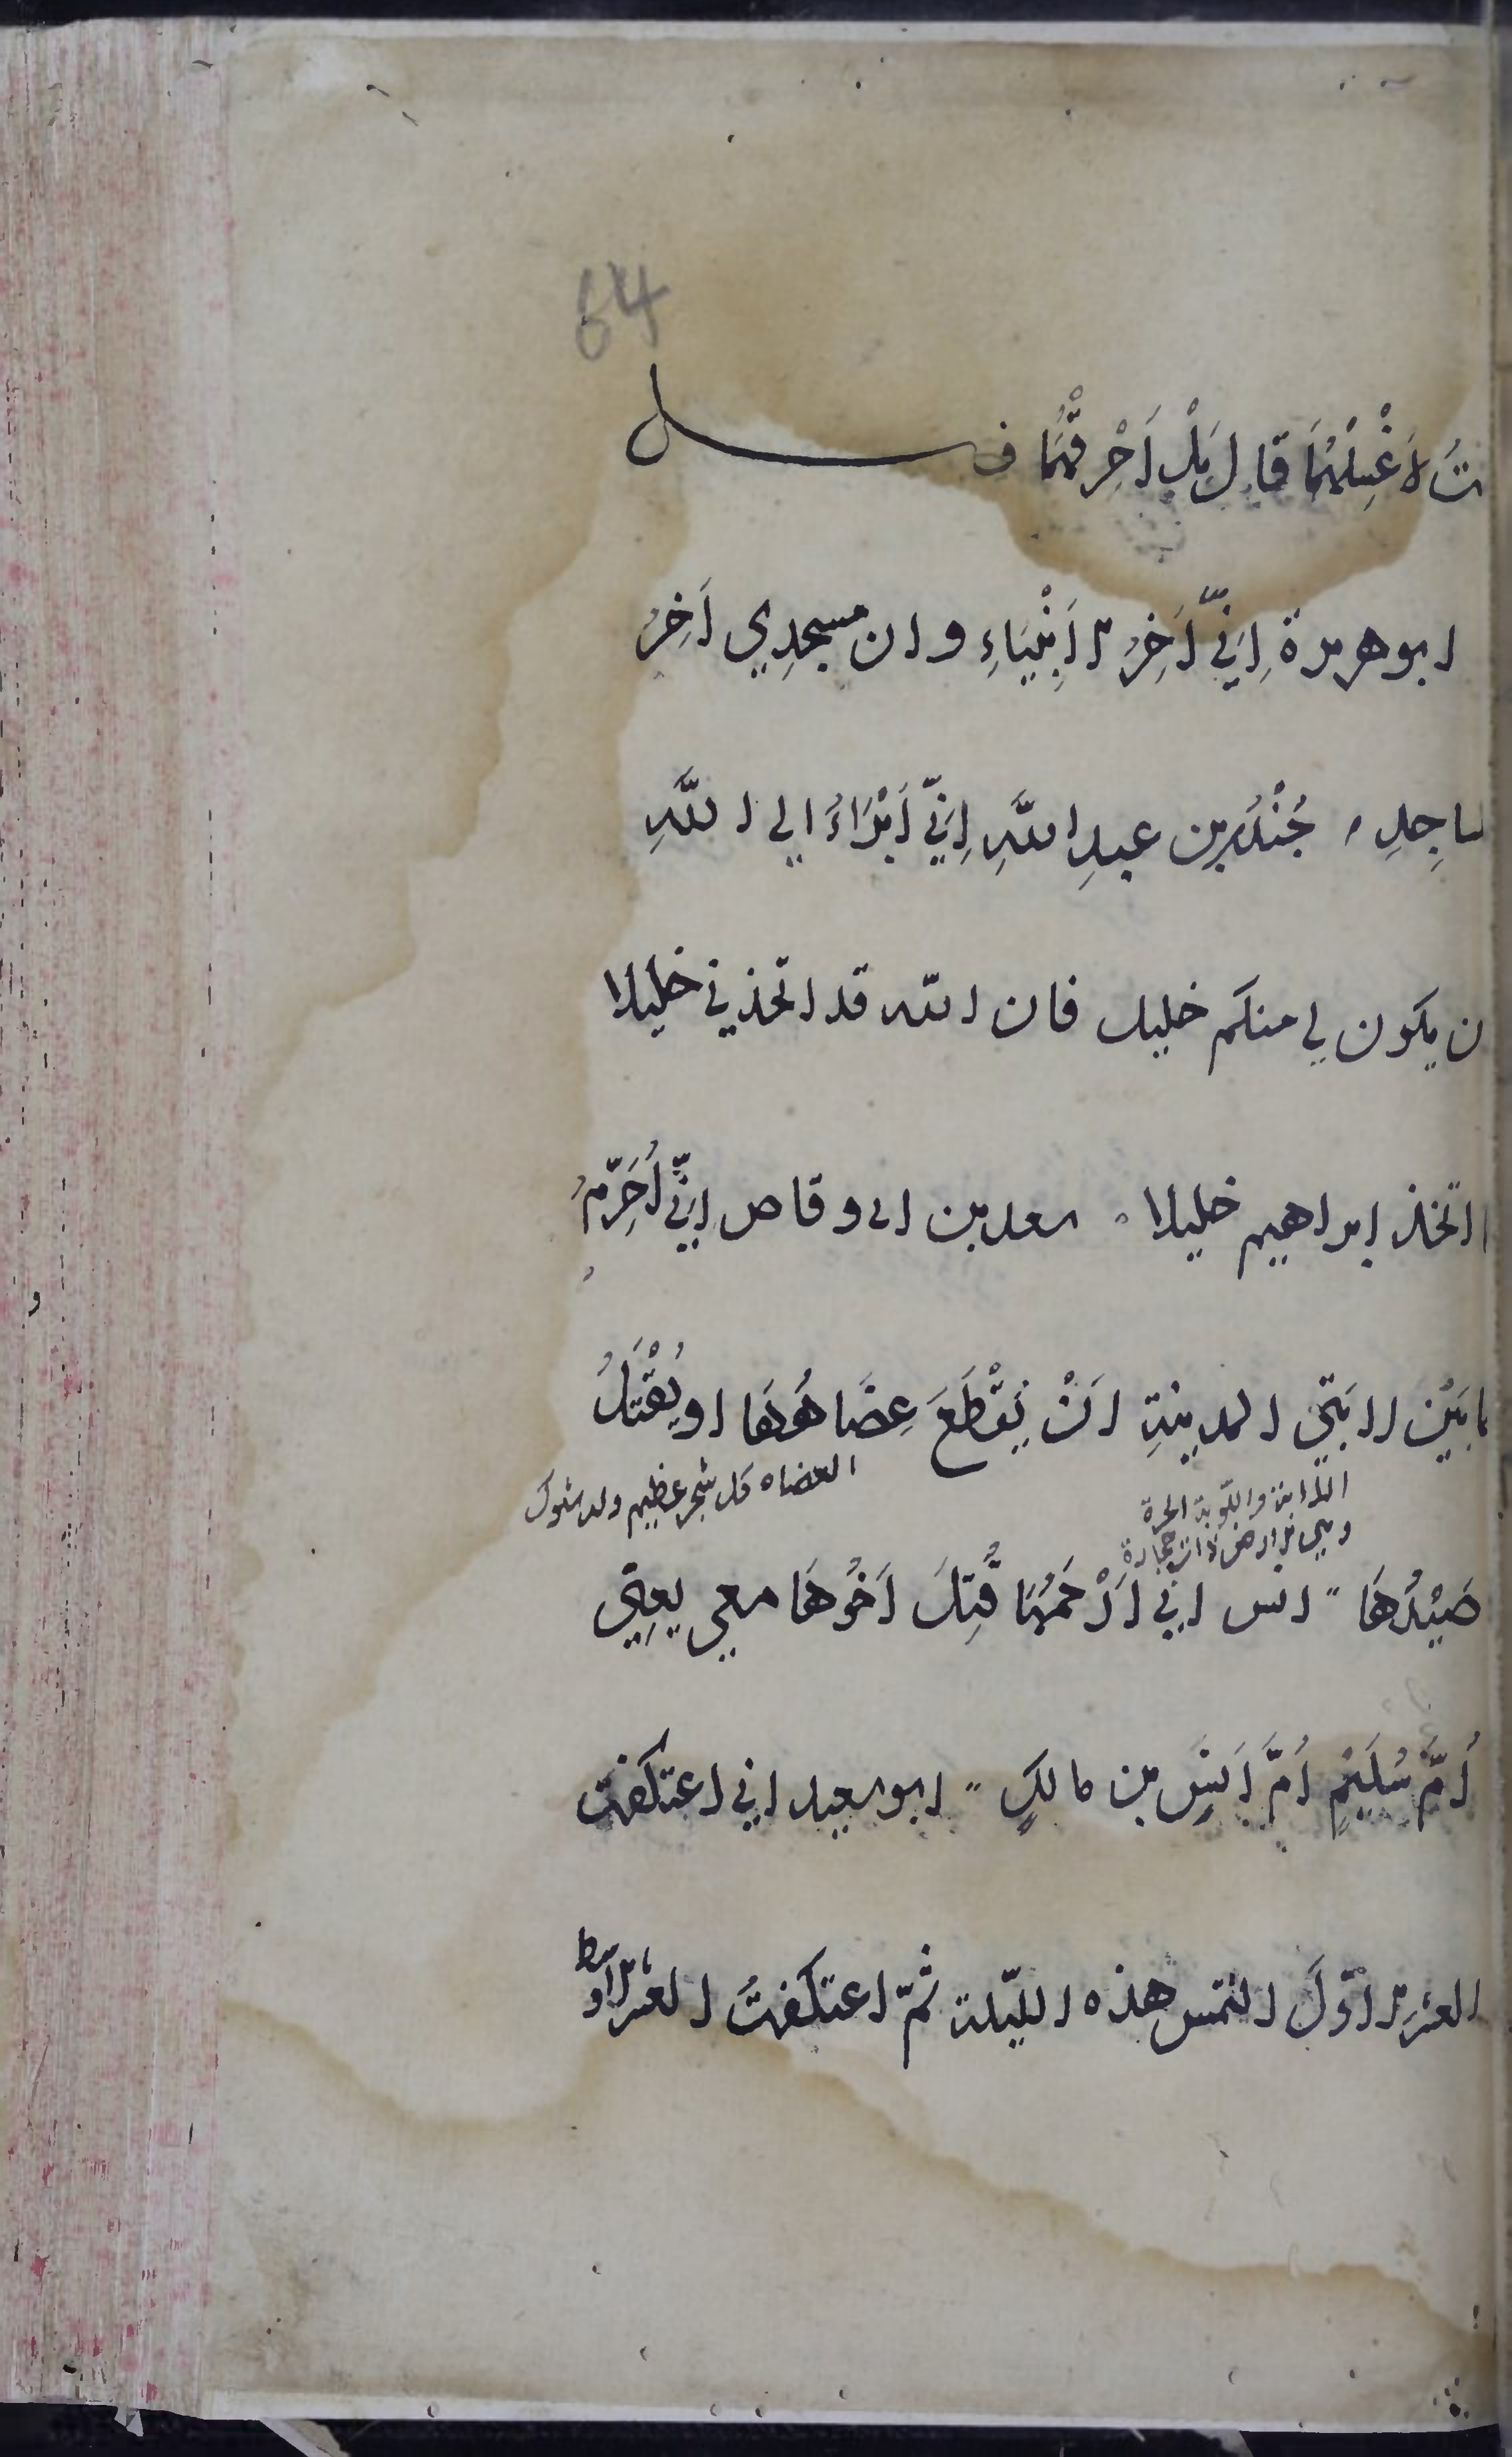 64
تُ لاَغْسِلُهُمَا قَالَ بَلْ اَحْرِقْهُمَا فـــصل
ابو هريرة اِنِّي آخِرُ الاَنْبِيَاءِ وان مسجدِي آخِرُ
ساجِدِ ، جُنْدُب بن عبدِ اللَّهِ اِنِّي اَبْرَاءُ الي اللَّهِ
ن يكون لي منكم خليل فان الله قد اتخذني خليلا
ا اتخذ ابراهيم خليلا ۰ سعد بن ابي وقاص اِنِّي اُحَرِّمُ
مابَيْن لابَتَي المدينةِ اَنْ يُقْطَعَ عِضَاهُهَا او يُقْتَلَ
العضاه كل شجر عظيم وله شوك
اللابة واللوبة الحرة
وهي الارض ذات حجارة
صَيْدُهَا " انس اني اَرْحَمُهَا قُتِلَ اَخُوهَا معي يعني
اُمَّ سُلَيْمٍ اُمَّ اَنَسِ بن مالكٍ " ابو سعيد اني اعتكفت
العشر الاوّلَ التمس هذه الليلة ثمّ اعتكفتُ العشر الاوسط